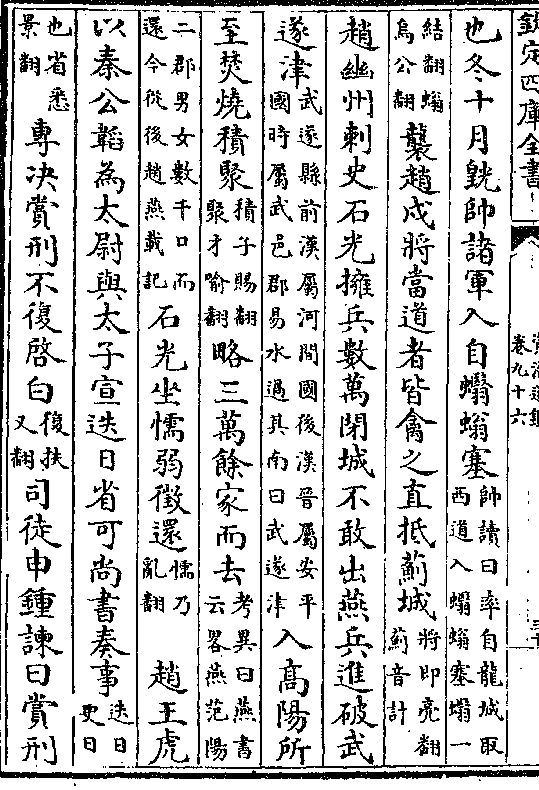 欽定四庫全書
卷九十六
也冬十月皝帥諸軍入自蠮螉塞帥讀曰率自龍城取西道入蠮螉塞蠮一
結翻螉烏公翻襲趙戍將當道者皆禽之直抵薊城將即亮翻薊音計
趙幽州刺史石光擁兵數萬閉城不敢出燕兵進破武
遂津武遂縣前漢屬河間國後漢晉屬安平國時屬武邑郡易水過其南曰武遂津入髙陽所
至焚燒積聚積子賜翻聚才喻翻略三萬餘家而去考異曰燕書云畧燕范陽
二郡男女數千口而還今從後趙燕載記石光坐懦弱徵還懦乃亂翻 趙王虎
以秦公韜為太尉與太子宣迭日省可尚書奏事迭日更日
也省悉景翻專決賞刑不復啓白復扶又翻司徒申鍾諫曰賞刑